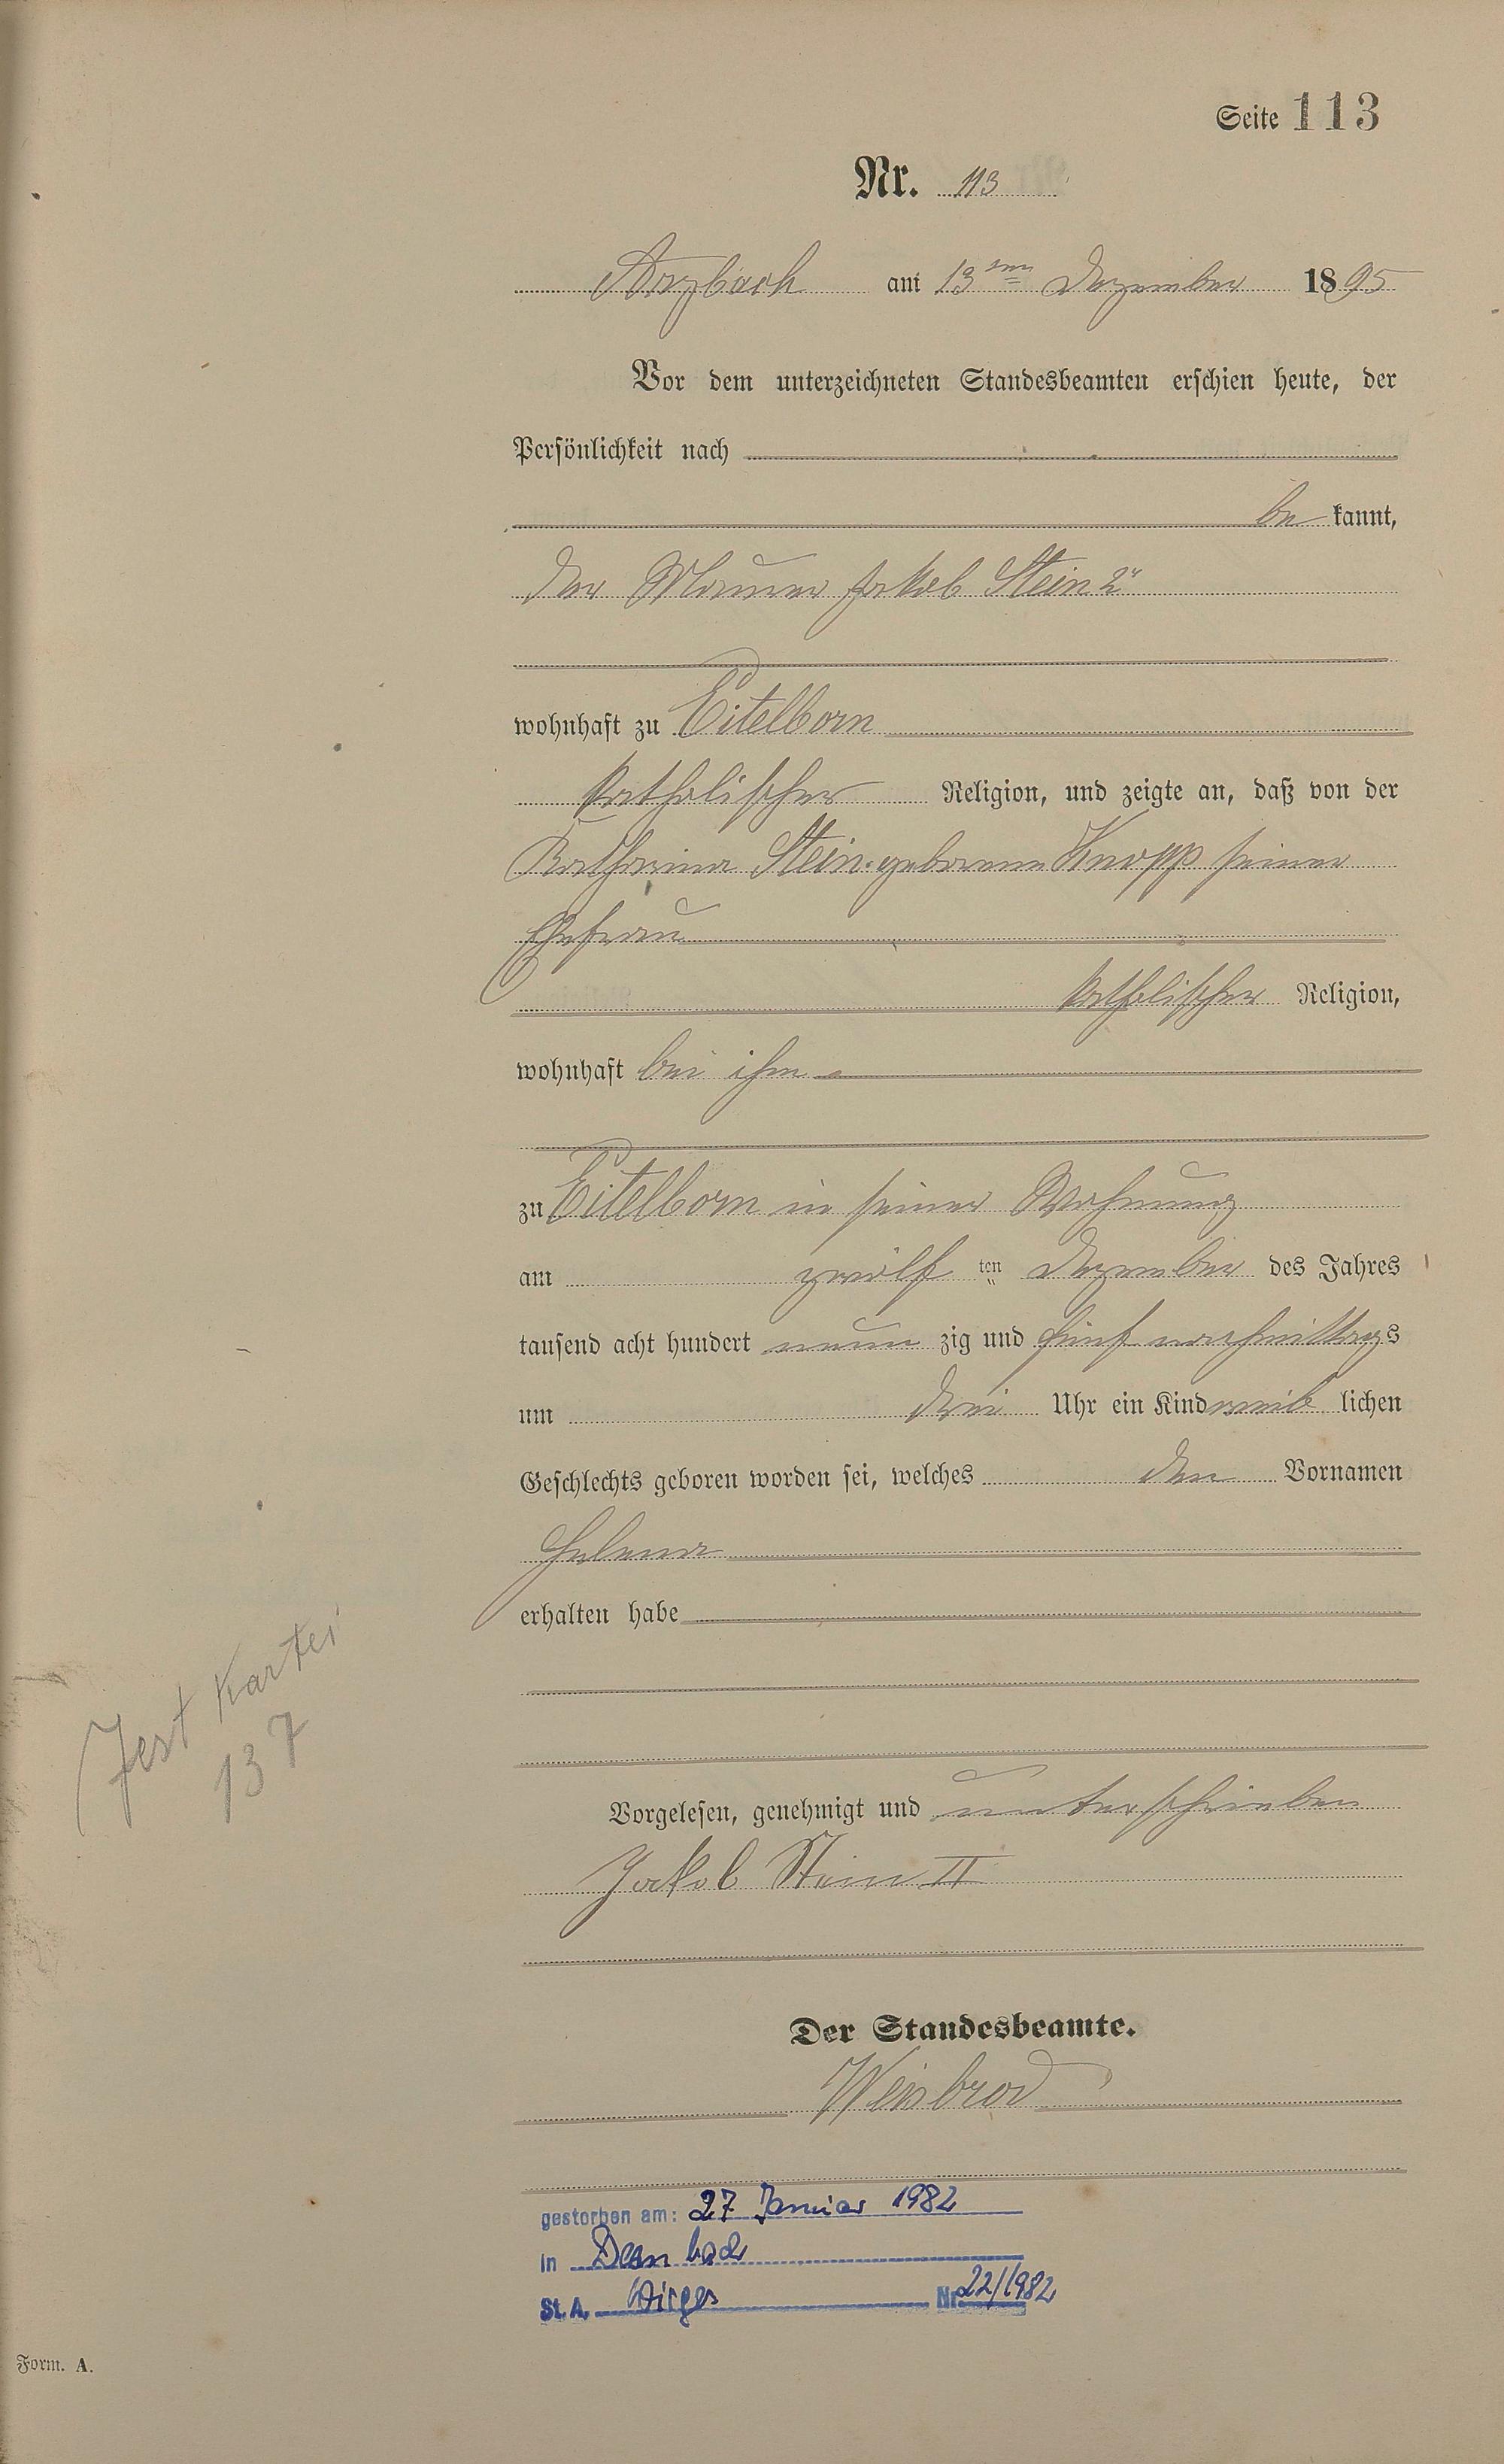 Seite 113
Nr. 113
Arzbach am 13ten Dezember 1895
Vor dem unterzeichneten Standesbeamten erschien heute, der
Persönlichkeit nach
be kannt,
der Maurer Jakob Stein 2r
wohnhaft zu Eitelborn
katholischer Religion, und zeigte an, daß von der
Katharina Stein geborenen Knopp seiner
Ehefrau
katholischer Religion,
wohnhaft bei ihm
zu Eitelborn in seiner Wohnung
am zwölf ten Dezember des Jahres
tausend acht hundert neun zig und fünf nachmittags
um drei Uhr ein Kind weib lichen
Geschlechts geboren worden sei, welches den Vornamen
Helena
erhalten habe
Test Kartei
137
Vorgelesen, genehmigt und unterschrieben
Jakob Stein II
Der Standesbeamte.
Weisbrod
gestorben am: 27 Januar 1982
in Dernbach
St. A. Wirges Nr. 22/1982
Form. A.